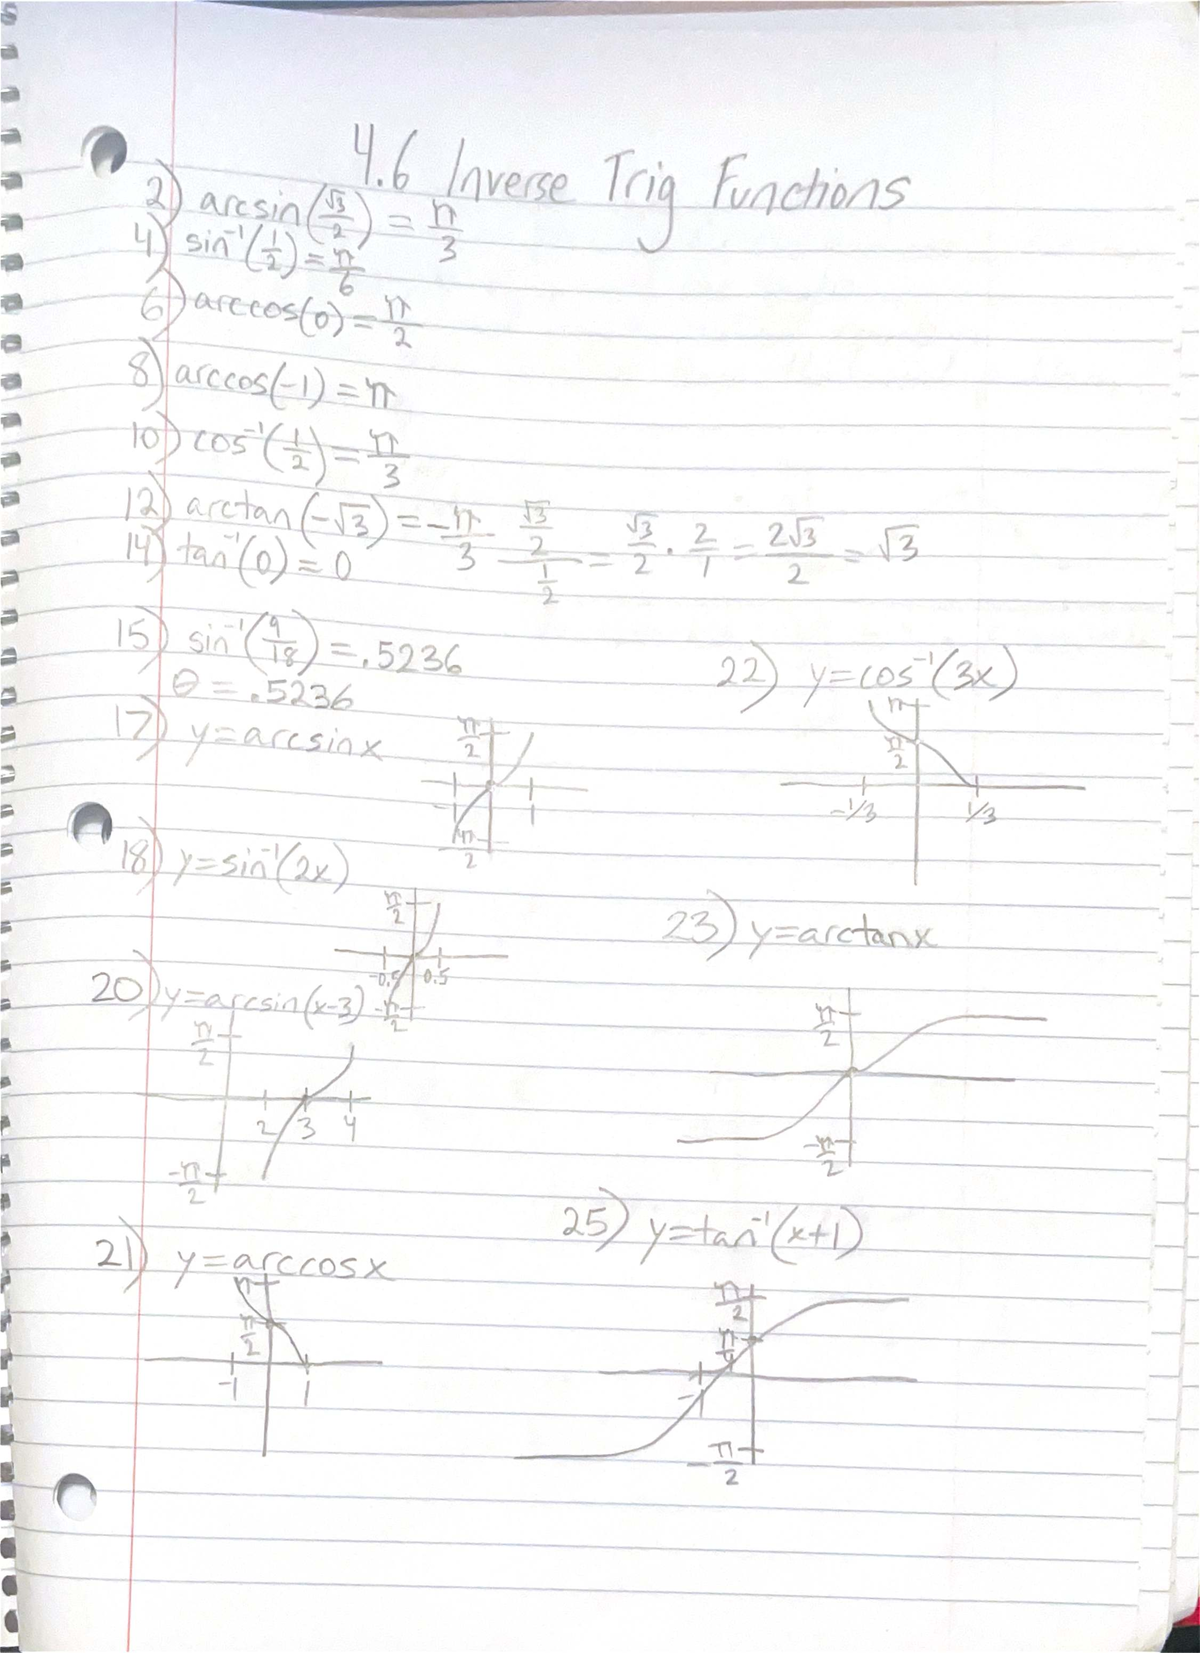 4.6 Inverse Trig Functions
2) arcsin(√3/2) = π/3
4) sin⁻¹(1/2) = π/6
6) arccos(0) = π/2
8) arccos(-1) = π
10) cos⁻¹(1/2) = π/3
12) arctan(-√3) = -π/3
(√3/2)/(1/2) = √3/2 · 2/1 = 2√3/2 = √3
14) tan⁻¹(0) = 0
15) sin⁻¹(9/18) = .5236
θ = .5236
17) y=arcsinx
π/2
-1 1
-π/2
18) y=sin⁻¹(2x)
π/2
-0.5 0.5
-π/2
20) y=arcsin(x-3)
π/2
2 3 4
-π/2
21) y=arccosx
π
π/2
-1 1
22) y=cos⁻¹(3x)
π
π/2
-1/3 1/3
23) y=arctanx
π/2
-π/2
25) y=tan⁻¹(x+1)
π/2
π/4
-1
-π/2